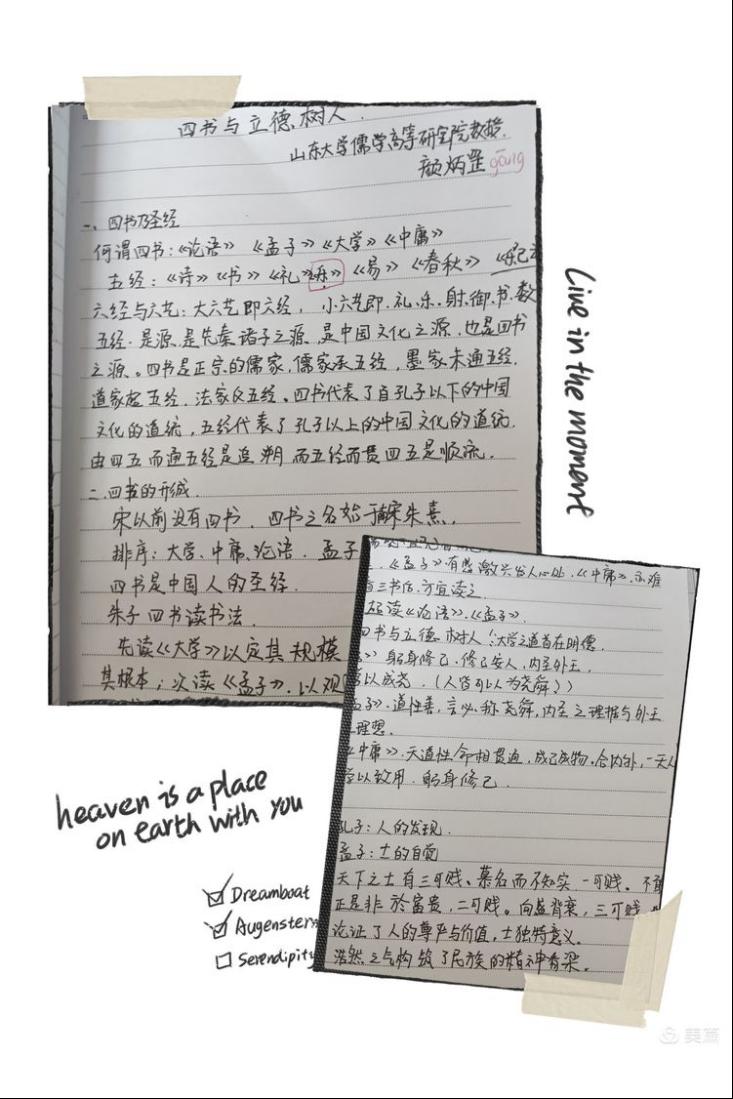 四书与立德树人.
山东大学儒学高等研究院教授.
颜炳罡 gāng
一、四书乃圣经
何谓四书：《论语》《孟子》《大学》《中庸》
五经：《诗》《书》《礼》《乐》《易》《春秋》
六经与六艺：大六艺即六经， 小六艺即.礼.乐.射.御.书.数
五经.是源.是先秦诸子之源.是中国文化之源.也是四书
之源。四书是正宗的儒家，儒家承五经，墨家未通五经.
道家 五经.法家反五经。四书代表了自孔子以下的中国
文化的道统，五经代表了孔子以上的中国文化的道统.
由四五而通五经是追溯 而五经而贯四五是顺流.
二.四书的形成.
宋以前没有四书.四书之名始于南宋朱熹.
排序：大学、中庸、论语.孟子
四书是中国人的圣经.
朱子四书读书法.
先读《大学》以定其规模
其根本；次读《孟子》.以观
.《孟子》有感激兴发人心处.《中庸》.亦难
三书后.方宜读之.
读《论语》.《孟子》.
四书与立德树人：大学之道首在明德.
躬身修己.修己安人.内圣外王.
以成尧.（人皆可以为尧舜））
.道性善，言必称尧舜，内圣之理据与外王
理想.
中庸》.天道性命相贯通，成己成物.合内外，一天人
学以致用.躬身修己.
孔子：人的发现.
孟子：士的自觉
天下之士有三可贱。慕名而不知实.一可贱。不敢
正是非于富贵，二可贱。向盛背衰，三可贱
论证了人的尊严与价值，士独特意义.
浩然之气构筑了民族的精神脊梁。
Live in the moment
heaven is a place
on earth with you
Dreamboat
Augenstern
Serendipity
美篇